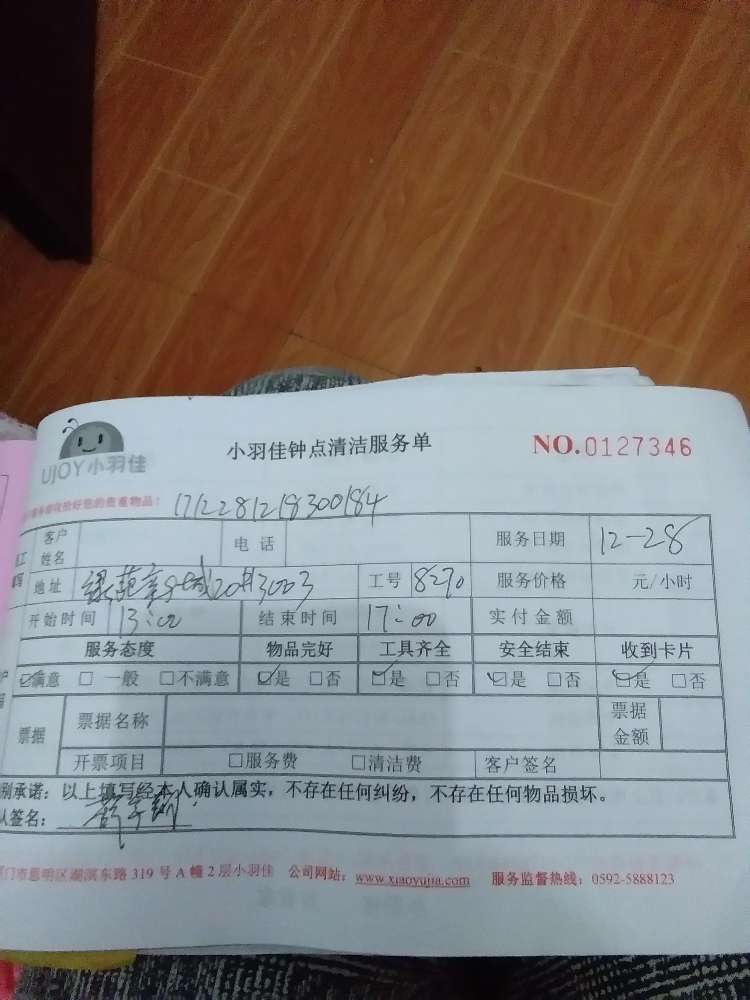 UJOY小羽佳
小羽佳钟点清洁服务单
NO.0127346
好您的贵重物品！ 171228121830084
客户姓名 电话 服务日期 12-28
地址 20 3003 工号 8290 服务价格 元/小时
开始时间 13:00 结束时间 17:00 实付金额
服务态度 物品完好 工具齐全 安全结束 收到卡片
☑满意 □一般 □不满意 ☑是 □否 ☑是 □否 ☑是 □否 ☑是 □否
票据 票据名称 票据金额
开票项目 □服务费 □清洁费 客户签名
别承诺：以上填写经本人确认属实，不存在任何纠纷，不存在任何物品损坏。
认签名：
门市思明区湖滨东路 319 号 A 幢 2 层小羽佳 公司网站：www.xiaoyujia.com 服务监督热线：0592-5888123